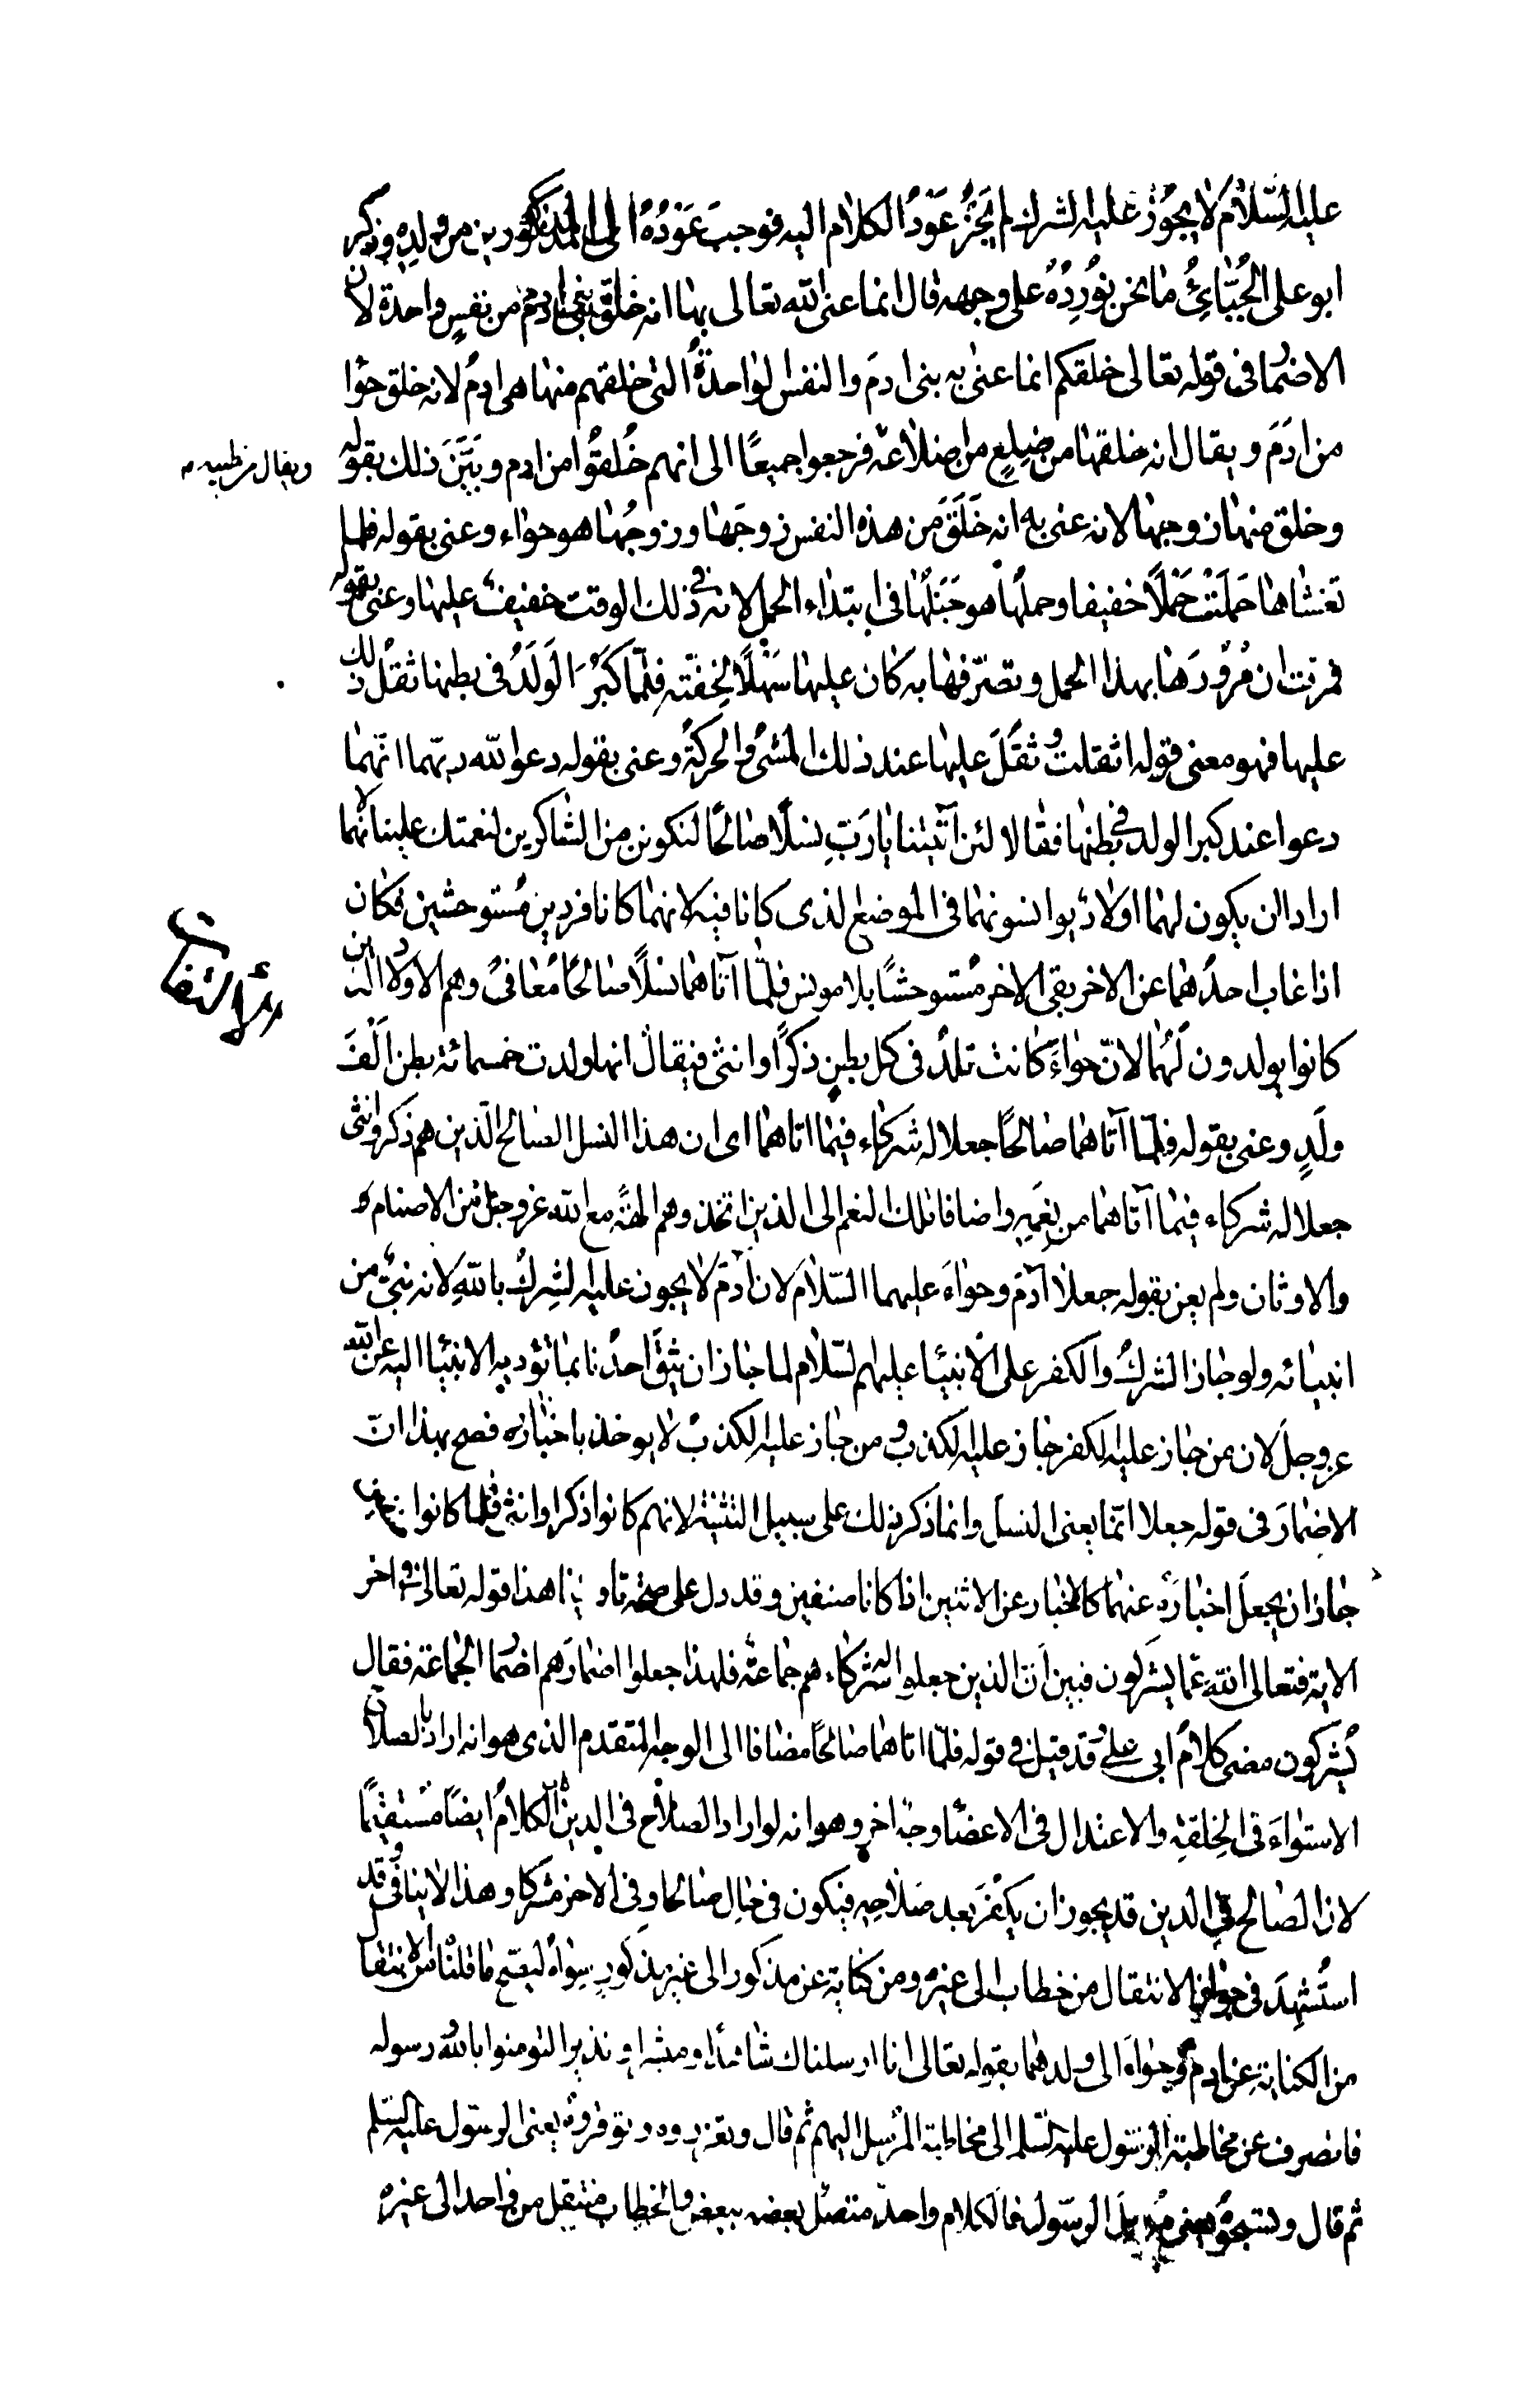 عليه السّلام لا يجوز عليه الشرك لم يَجُزْ عَوْدُ الكلام اليه فوجبَ عَوْدُهُ الى المذكورين من ولدِهِ وذكر
ابو على الجُبّائِىُّ ما نحن نُورِدُهُ على وجهه قال انما عنى الله تعالى بهذا انه خلق بنى ادم من نفسٍ واحدة لان
الاضما فى قوله تعالى خلقكم انما عنى به بنى ادمَ والنفس الواحدةُ التى خلقهم منها هى ادمُ لانه خلق حوا
من ادَمَ ويقال انه خلقها من ضِلعٍ من اضلاعه فرجعوا جميعًا الى انهم خُلقُوا من ادم وبَيَّنَ ذلك بقوله
ويقال من طينه
وخلق منها زوجها لانه عنى به انه خَلَقَ من هذه النفس زوجَها وزوجُها هو حواء وعنى بقوله فلما
تغشاها حَمَلَتْ حَمْلًا خفيفا وحملُها هو حَبَلُها فى ابتداء الحمل لانه فى ذلك الوقت خفيفٌ عليها وعنى بقوله
فمرت ان مُرُورَها بهذا الحمل وتصرّفها به كان عليها سَهْلًا لِخفّته فلمّا كَبُرَ الوَلَدُ فى بطنها ثقُل ذلك
عليها فهو معنى قوله اثقلت وثقُلَ عليها عند ذلك المشىُ والحركةُ وعنى بقوله دعوا الله ربّهما انّهما
دعوا عند كبر الولد فى بطنها فقالا لئن آتيتنا يا رَبّ نسلًا صالحًا لنكونن من الشاكرين لنعمتك علينا لانهما
ارادا ان يكون لهما اولادٌ يوانسونهما فى الموضع الذى كانا فيه لانهما كانا فردين مُستوحشين فكان
اذا غاب احدُهما عن الاخر بقى الاخر مُستوحشًا بلا مونس فلمّا آتاهما نسلًا صالحًا مُعافىً وهم الاولاد الذين
كانوا يولدون لَهُما لانّ حواءَ كانت تلدُ فى كل بطنٍ ذكرًا وانثى فيقال انها ولدت خمسمائة بطن اَلْفَ
ولَدٍ وعنى بقوله فلمّا آتاهما صالحًا جعلا له شركاء فيما اتاهما اى ان هذا النسل الصالح الّذين هم ذكر وانثى
جعلا له شركاء فيما آتاهما من نِعَمِهِ واضافا تلك النعم الى الذين اتخذوهم الهةً مع الله عز وجل من الاصنام
والاوثان ولم يعنِ بقوله جعلا آدَمَ وحواءَ عليهما السّلام لان آدمَ لا يجوز عليه الشِركُ باللهِ لانه نبىٌّ من
انبيائه ولو جاز الشركُ والكفر على الانبيا عليهم السّلام لما جاز ان يثقَ احدُنا بما تؤديه الانبيا اليه عن الله
عز وجلّ لان من جاز عليه الكفر جاز عليه الكذب ومن جاز عليه الكذبُ لا يوخذ باخباره فصح بهذا انّ
الاضمارَ فى قوله جعلا انّما يعنى النسلَ وانما ذكر ذلك على سبيل التثنية لانهم كانوا ذكرا وانثى فلما كانوا صنفين
جاز ان يجعلَ اخبارَهُ عنهما كالاخبار عن الاثنين اذا كانا صنفين وقد دل على صحة تاويلنا هذا قوله تعالى فى اخر
الاية فتعالى اللهُ عمّا يشركون فبين اَنّ الذين جعلوا لله شركاء هم جماعة فلهذا جعلوا اضمارَهم اضما الجماعة فقال
يُشركون مضى كلامُ ابى على وقد قيل فى قوله فلمّا اتاهما صالحًا مضافا الى الوجه المتقدم الذى هو انه اراد بالصلاح
الاستواءَ فى الخِلقةِ والاعتدال فى الاعضا وجهٌ اخر وهو انه لو اراد الصلاح فى الدين لكان الكلامُ ايضًا مستقيمًا
لان الصالح فى الدين قد يجوز ان يكفرَ بعد صَلاحِهِ فيكون فى حالٍ صالحا وفى الاخر مشركا وهذا لا يتنافى وقد
استُشهِدَ فى جواز الانتقال من خطاب الى غيره ومن كناية عن مذكور الى غيره مذكور سواهُ ليصحّ ما قلناه من الانتقال
من الكناية عن ادم وحواءَ الى ولدهما بقوله تعالى انا ارسلناك شاهدًا ومبشرا ونذيرا لتومنوا بالله ورسوله
فانصرف عن مخاطبة الرسُول عليه السّلم الى مخاطبة المرسل اليهم ثم قال وتعزروه وتوقروهُ يعنى الرسُول عليه السّلم
ثم قال وتسبحُوهُ يعنى مُرسِلَ الرسُول فالكلام واحدٌ متصلٌ بعضه ببعض والخطاب منتقل من واحد الى غيره